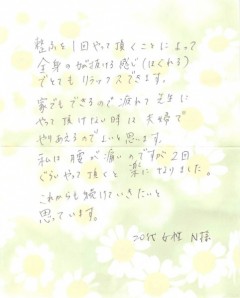 整ふを1回やって頂くことによって
全身の力が抜ける感じ(ほぐれる)
でとてもリラックスできます。
家でもできるので疲れて先生に
やって頂けない時は夫婦で
やりあえるのでよいと思います。
私は腰が痛いのですが2回
ぐらいやって頂くと楽になりました。
これからも続けていきたいと
思っています。
20代 女性 N様